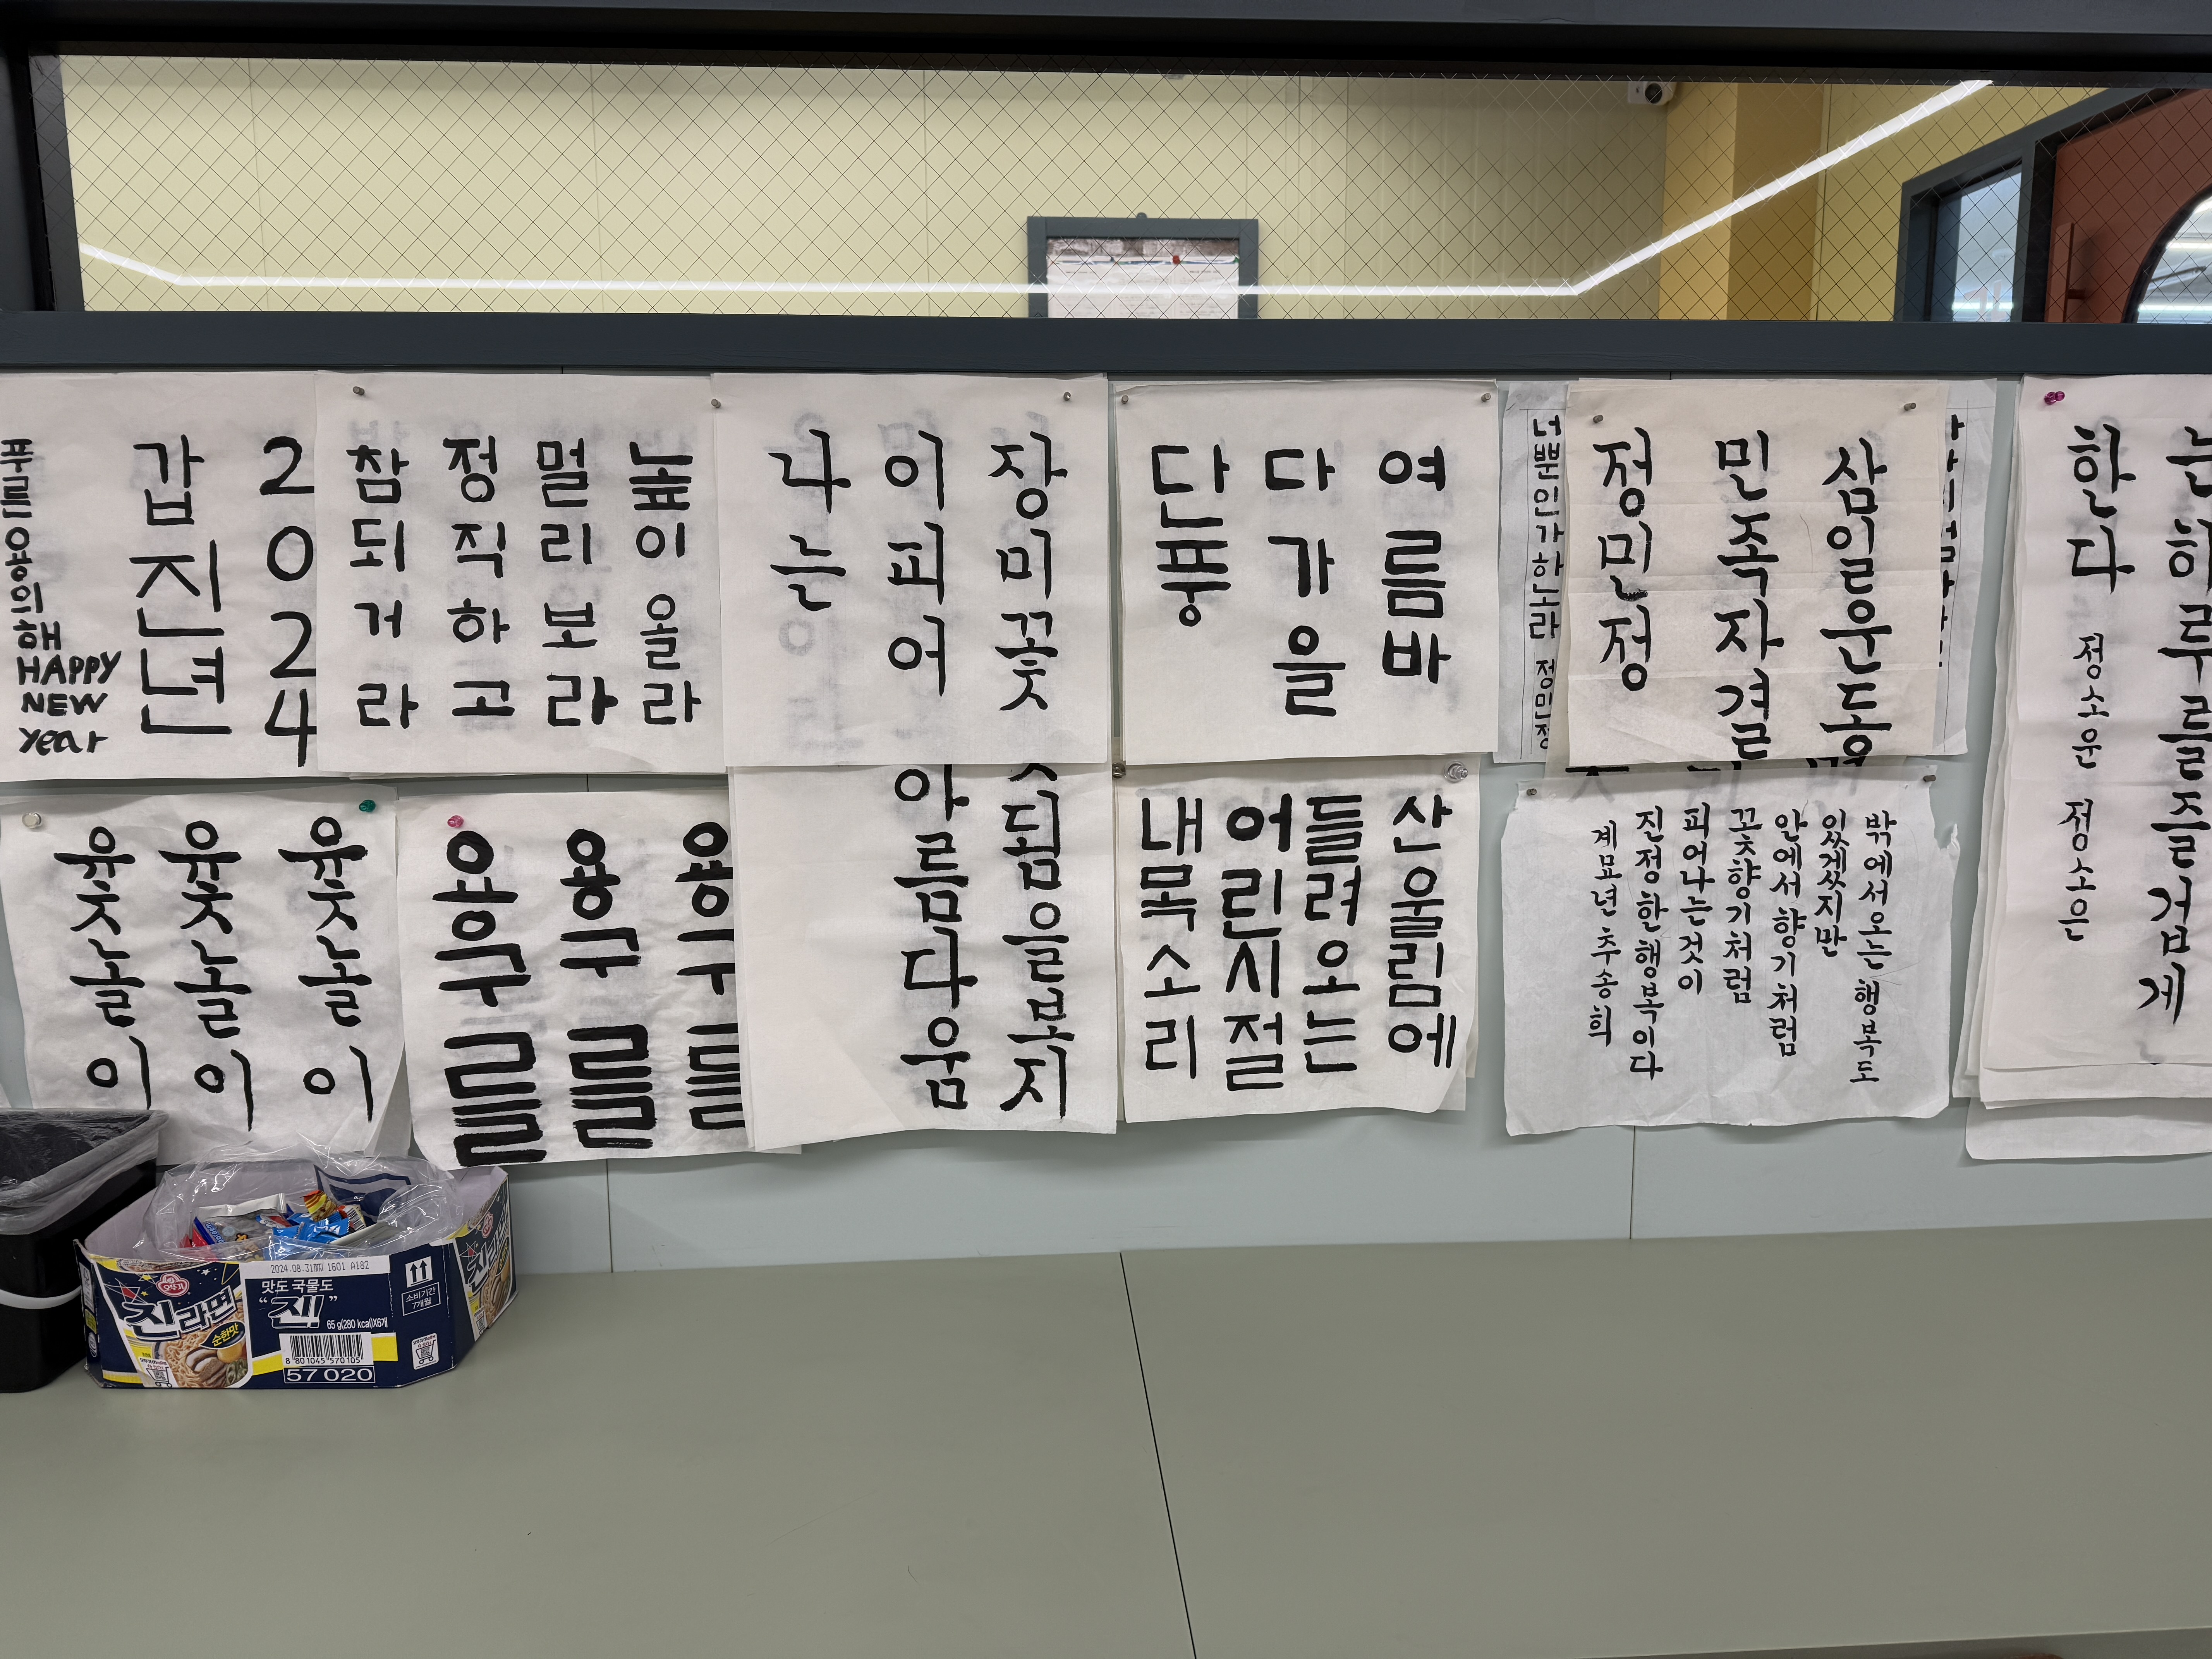 2024
갑진년
푸른용의해
HAPPY
NEW
year
높이올라
멀리보라
정직하고
참되거라
장미꽃
이피어
나는
여름바
다가을
단풍
너뿐인가하노라 정민정
삼일운동
민족자결
정민정
는하루를즐겁게
한다 정소운 정소은
윷놀이
윷놀이
윷놀이
용구를
용구를
용구를
됨을보지
아름다움
산울림에
들려오는
어린시절
내목소리
밖에서오는행복도
있겠지만
안에서향기처럼
꽃향기처럼
피어나는것이
진정한행복이다
계묘년추송희
2024.08.31까지 1601 A182
오뚜기
진라면
순한맛
맛도 국물도
“진!”
65 g(280 kcal)X6개
8 801045 570105
57 020
소비기간
7개월
진라면